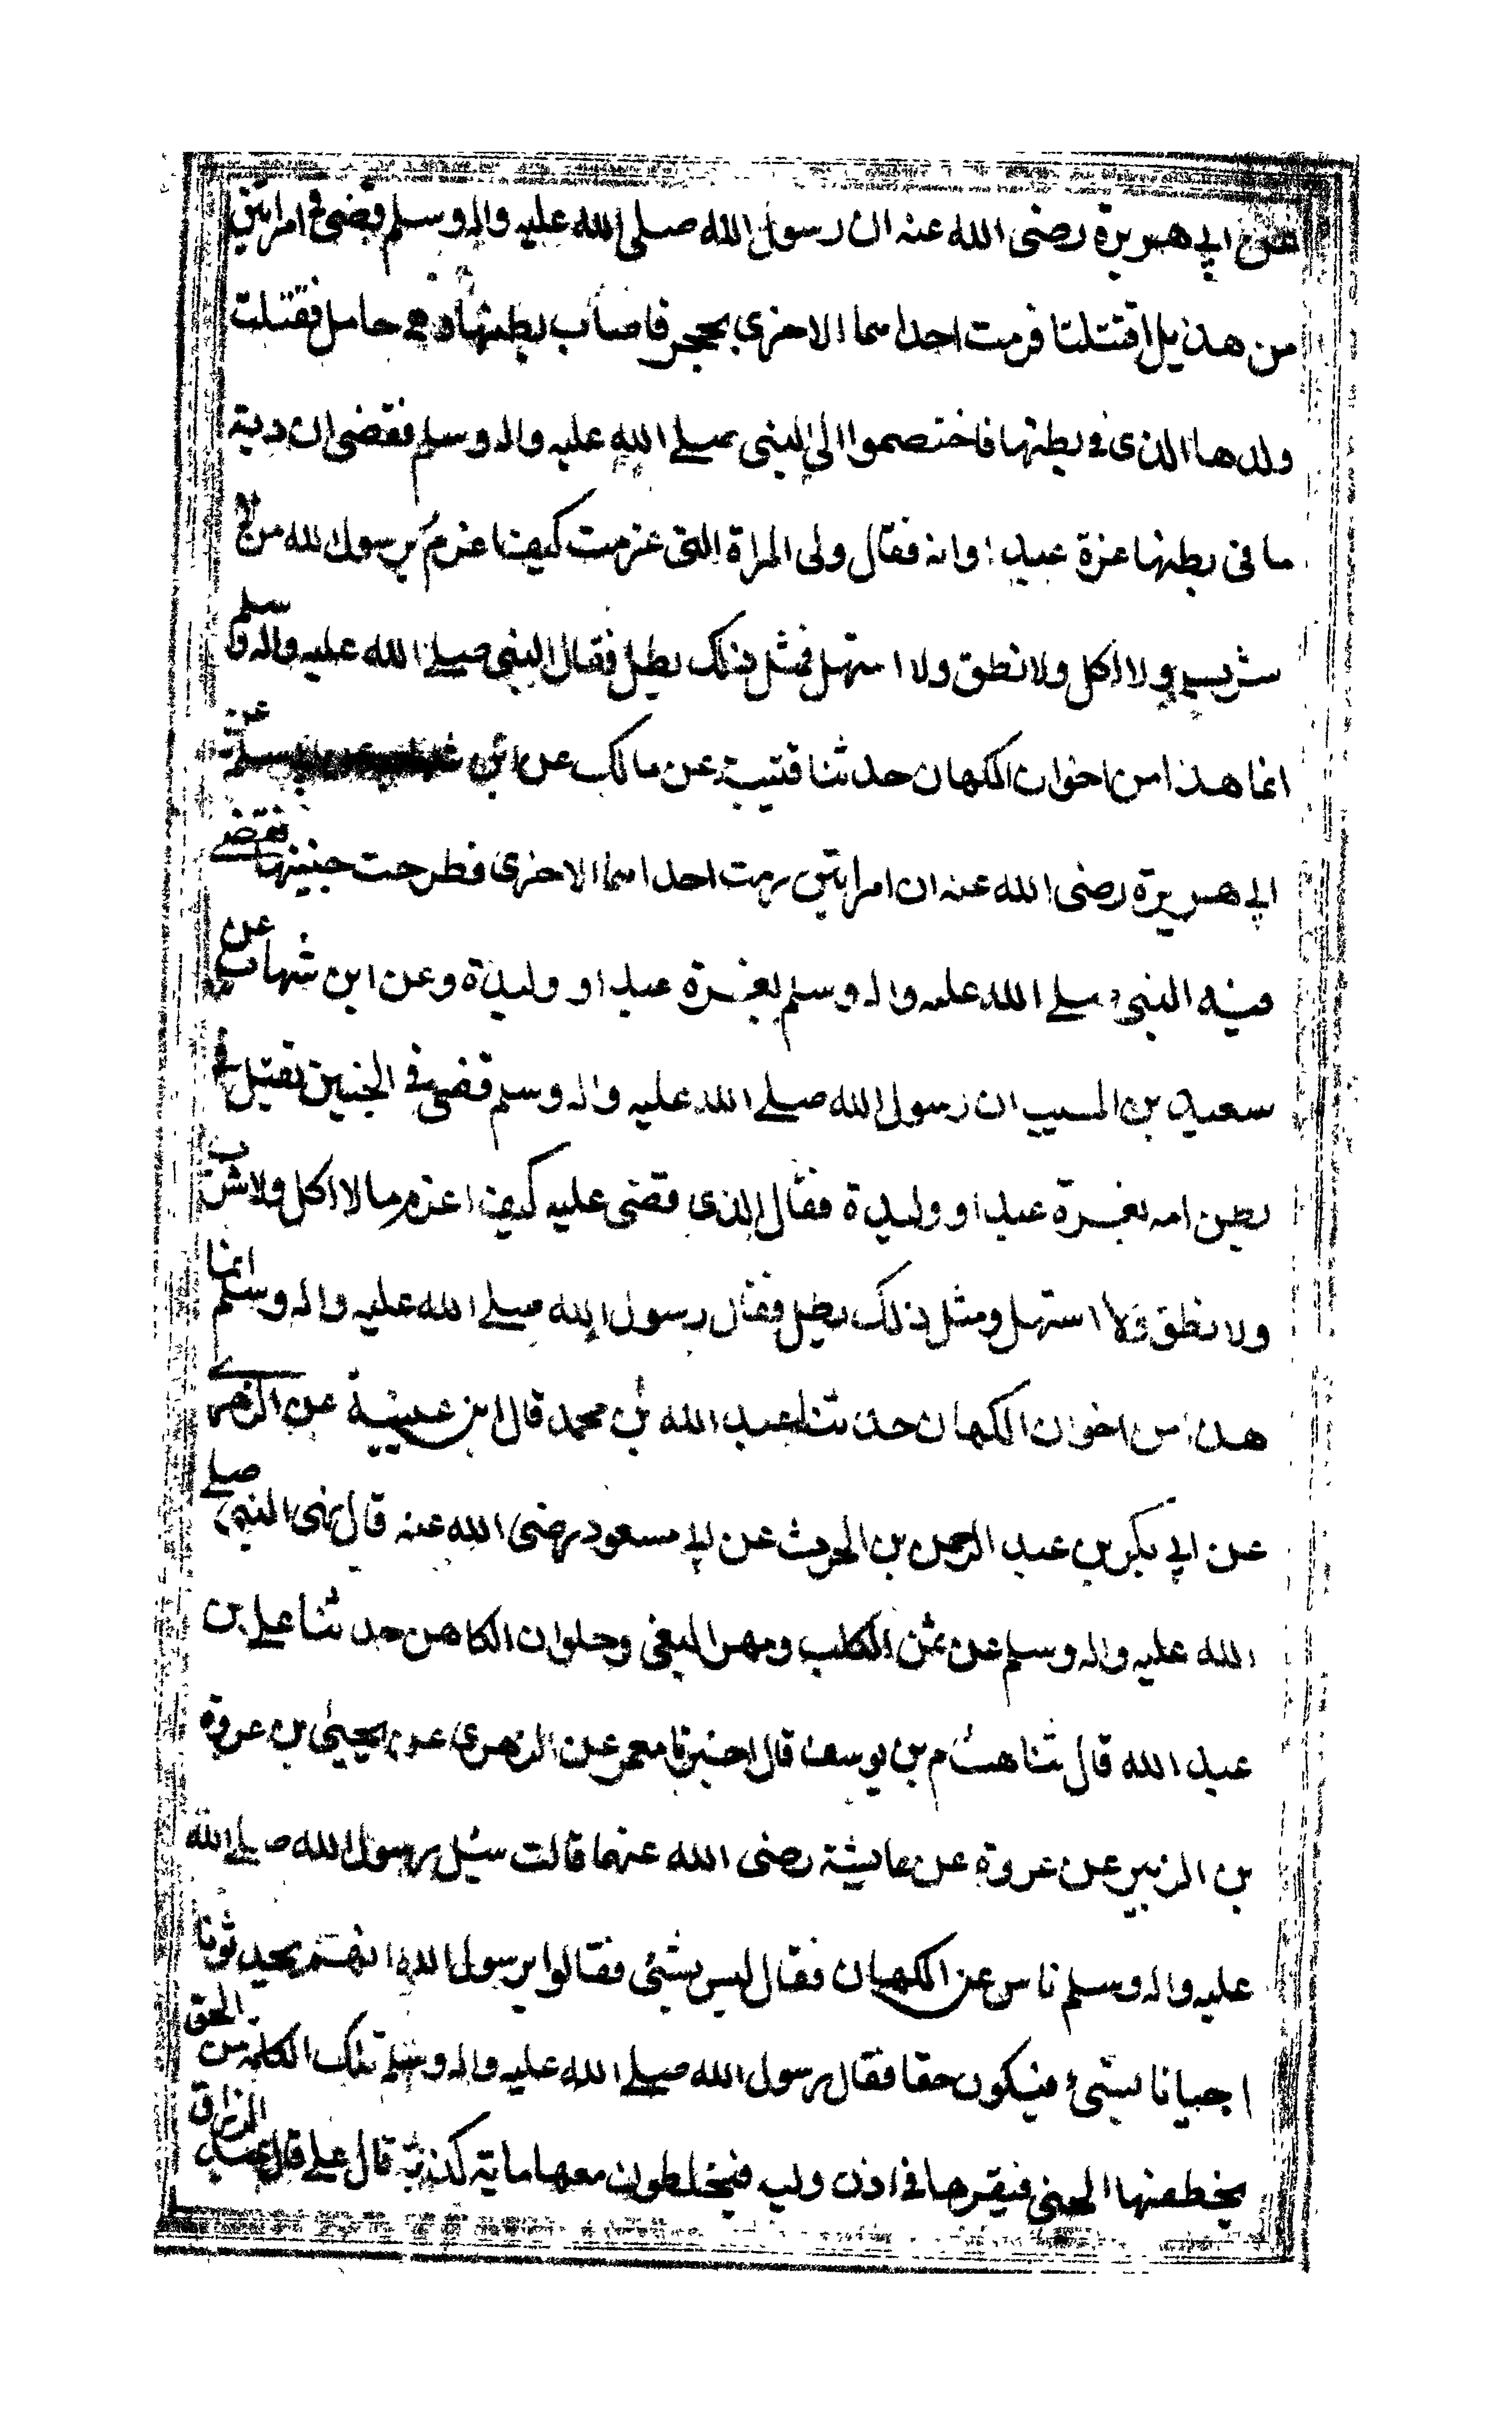 عن ابي هريرة رضى الله عنه ان رسول الله صلى الله عليه واله وسلم قضى في امراتين
من هذيل اقتتلتا فرمت احداهما الاخرى بحجر فاصاب بطنها وهي حامل فقتلت
ولدها الذى في بطنها فاختصموا الى النبى صلے الله عليه واله وسلم فقضى ان دية
ما فى بطنها غرة عبد او امة فقال ولى المراة التى غرمت كيف اغرم يرسول الله من لا
شرب ولا اكل ولا نطق ولا استهل فمثل ذلك بطل فقال النبى صلے الله عليه واله وسلم
انما هذا من اخوان الكهان حدثنا قتيبة عن مالك عن ابن شهاب عن ابي سلمة عن
ابي هريرة رضى الله عنه ان امراتين رمت احداهما الاخرى فطرحت جنينها فقضے
فيه النبى صلے الله عليه واله وسلم بغرة عبد او وليدة وعن ابن شهاب عن
سعيد بن المسيب ان رسول الله صلے الله عليه واله وسلم قضى في الجنين يقتل في
بطن امه بغرة عبد او وليدة فقال الذى قضى عليه كيف اغرم ما لا اكل ولا شرب
ولا نطق ولا استهل ومثل ذلك بطل فقال رسول الله صلے الله عليه واله وسلم انما
هذا من اخوان الكهان حدثنا عبد الله بن محمد قال ابن عيينة عن الزهرے
عن ابي بكر بن عبد الرحمن بن الحرث عن ابي مسعود رضى الله عنه قال نهى النبى صلے
الله عليه واله وسلم عن ثمن الكلب ومهر البغى وحلوان الكاهن حدثنا علے بن
عبد الله قال ثنا هشام بن يوسف قال اخبرنا معمر عن الزهرى عن يحيى بن عروة
بن الزبير عن عروة عن عايشة رضى الله عنها قالت سئل رسول الله صلے الله
عليه واله وسلم ناس عن الكهان فقال ليس بشئى فقالوا يرسول الله انهم يحدثونا
احيانا بشئ فيكون حقا فقال رسول الله صلے الله عليه واله وسلم تلك الكلمة من الحق
يخطفها الجنى فيقرها في اذن وليه فيخلطون معها ماية كذبة قال علے قال عبد الرزاق